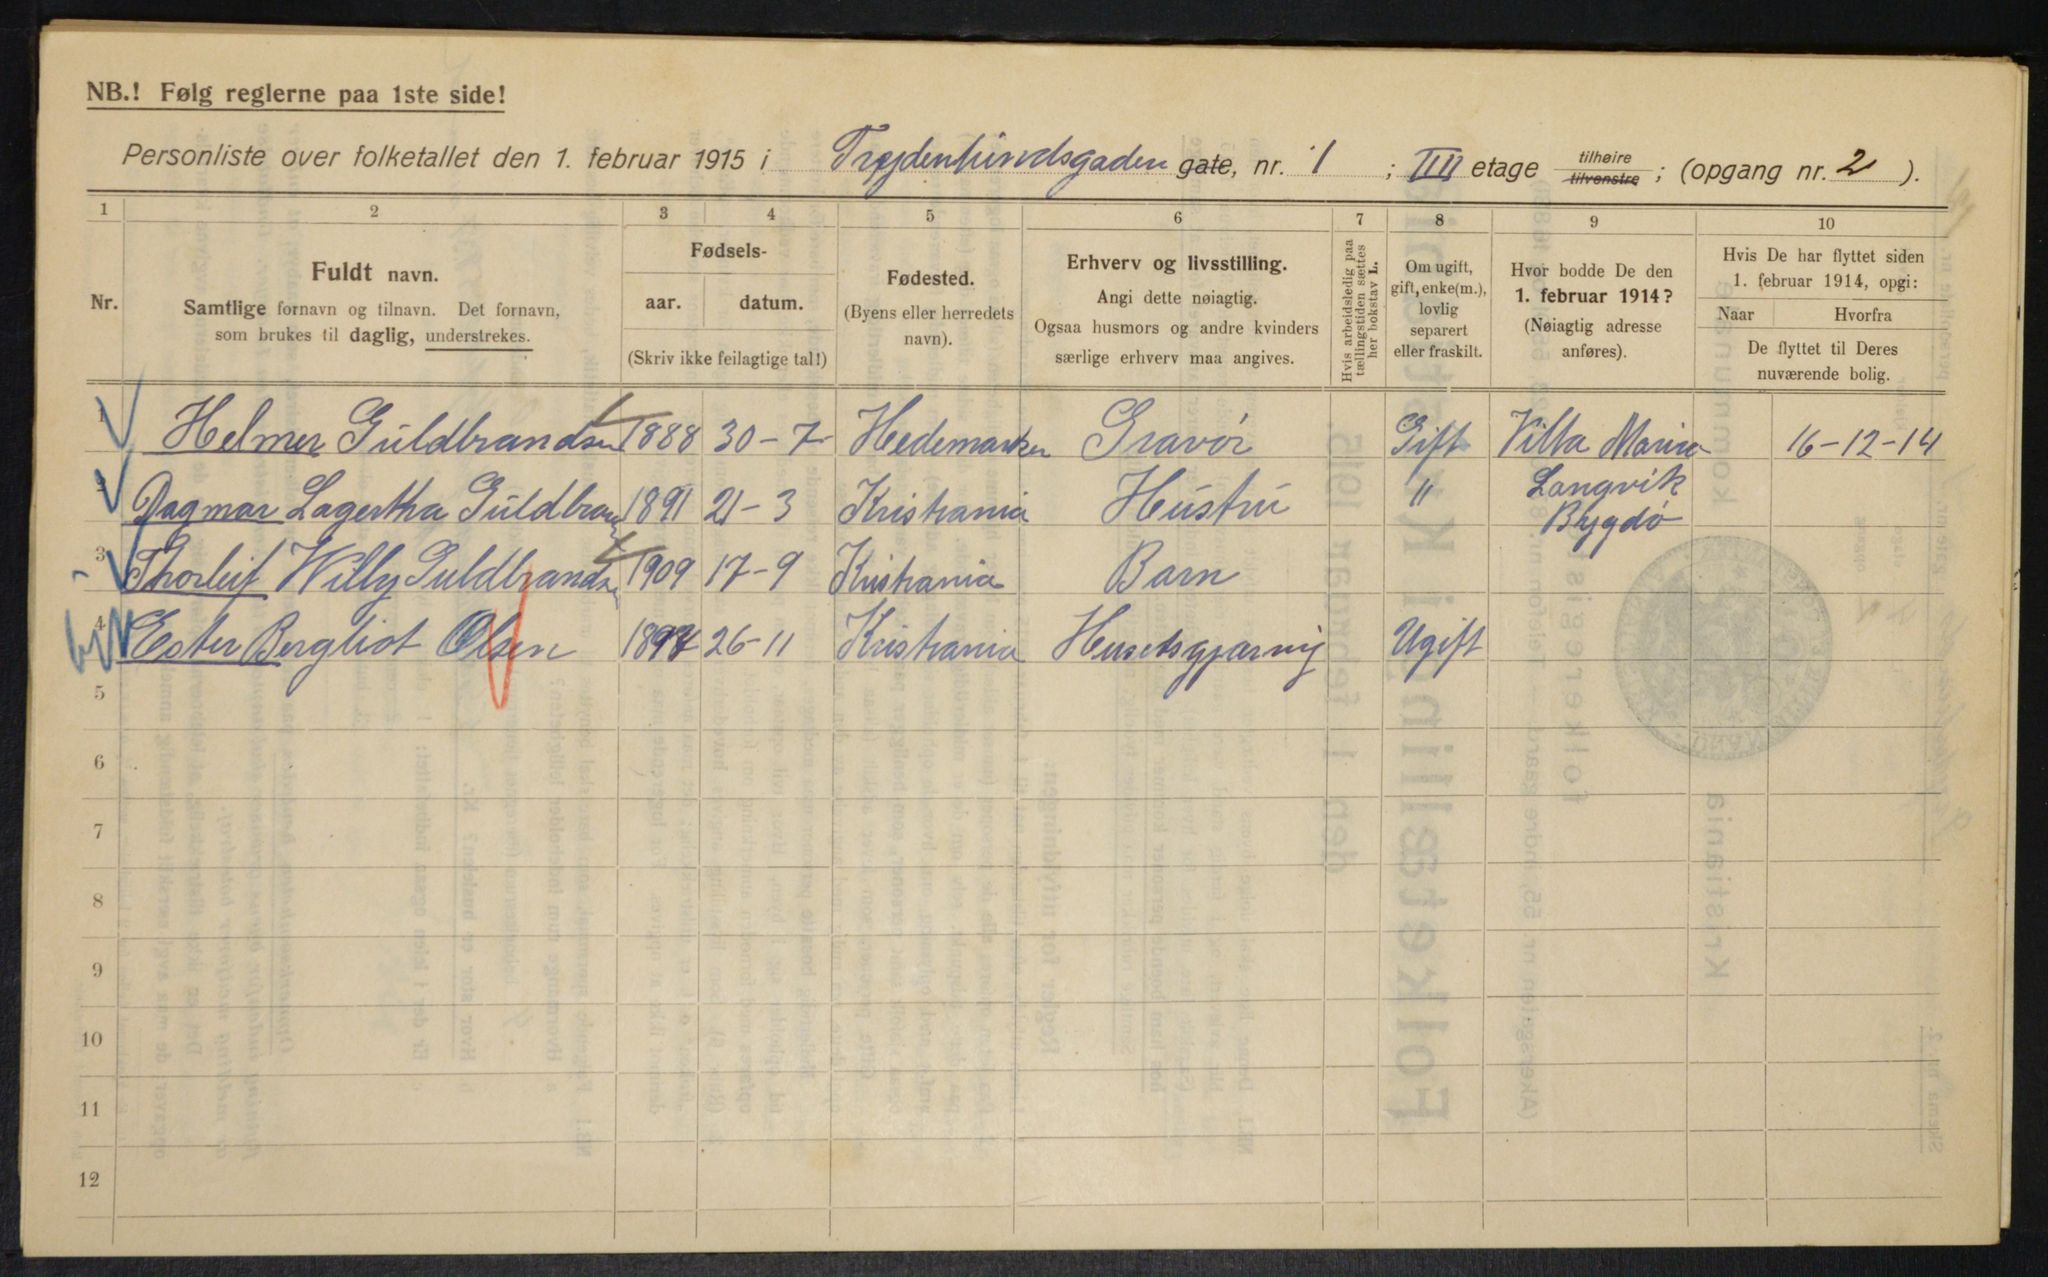 NB.! Følg reglerne paa 1ste side!
Personliste over folketallet den 1. februar 1915 i gate, nr. 1 ; IIII etage tilhøire tilvenstre ; (opgang nr. 2 ).
1 2 3 4 5 6 7 8 9 10
Nr.
Fuldt navn.
Samtlige fornavn og tilnavn. Det fornavn,
som brukes til daglig, understrekes.
Fødsels-
aar. datum.
(Skriv ikke feilagtige tal!)
Fødested.
(Byens eller herredets
navn).
Erhverv og livsstilling.
Angi dette nøiagtig.
Ogsaa husmors og andre kvinders
særlige erhverv maa angives.
Hvis arbeidsledig paa
tællingstiden sættes
her bokstav L.
Om ugift,
gift, enke(m.),
lovlig
separert
eller fraskilt.
Hvor bodde De den
1. februar 1914?
(Nøiagtig adresse
anføres).
Hvis De har flyttet siden
1. februar 1914, opgi:
Naar Hvorfra
De flyttet til Deres
nuværende bolig.
1 Helmer Guldbrandsen 1888 30-7 Hedemarken Gravør Gift Villa Marina 16-12-14
2 Dagmar Lagertha Guldbrandsen 1891 21-3 Kristiania Hustru " Langvik
Bygdö
3 Thorleif Willy Guldbrandsen 1909 17-9 Kristiania Barn
4 Ester Bergliot Olsen 26-11 Kristiania Husetsgjærnig Ugift
5
6
7
8
9
10
11
12